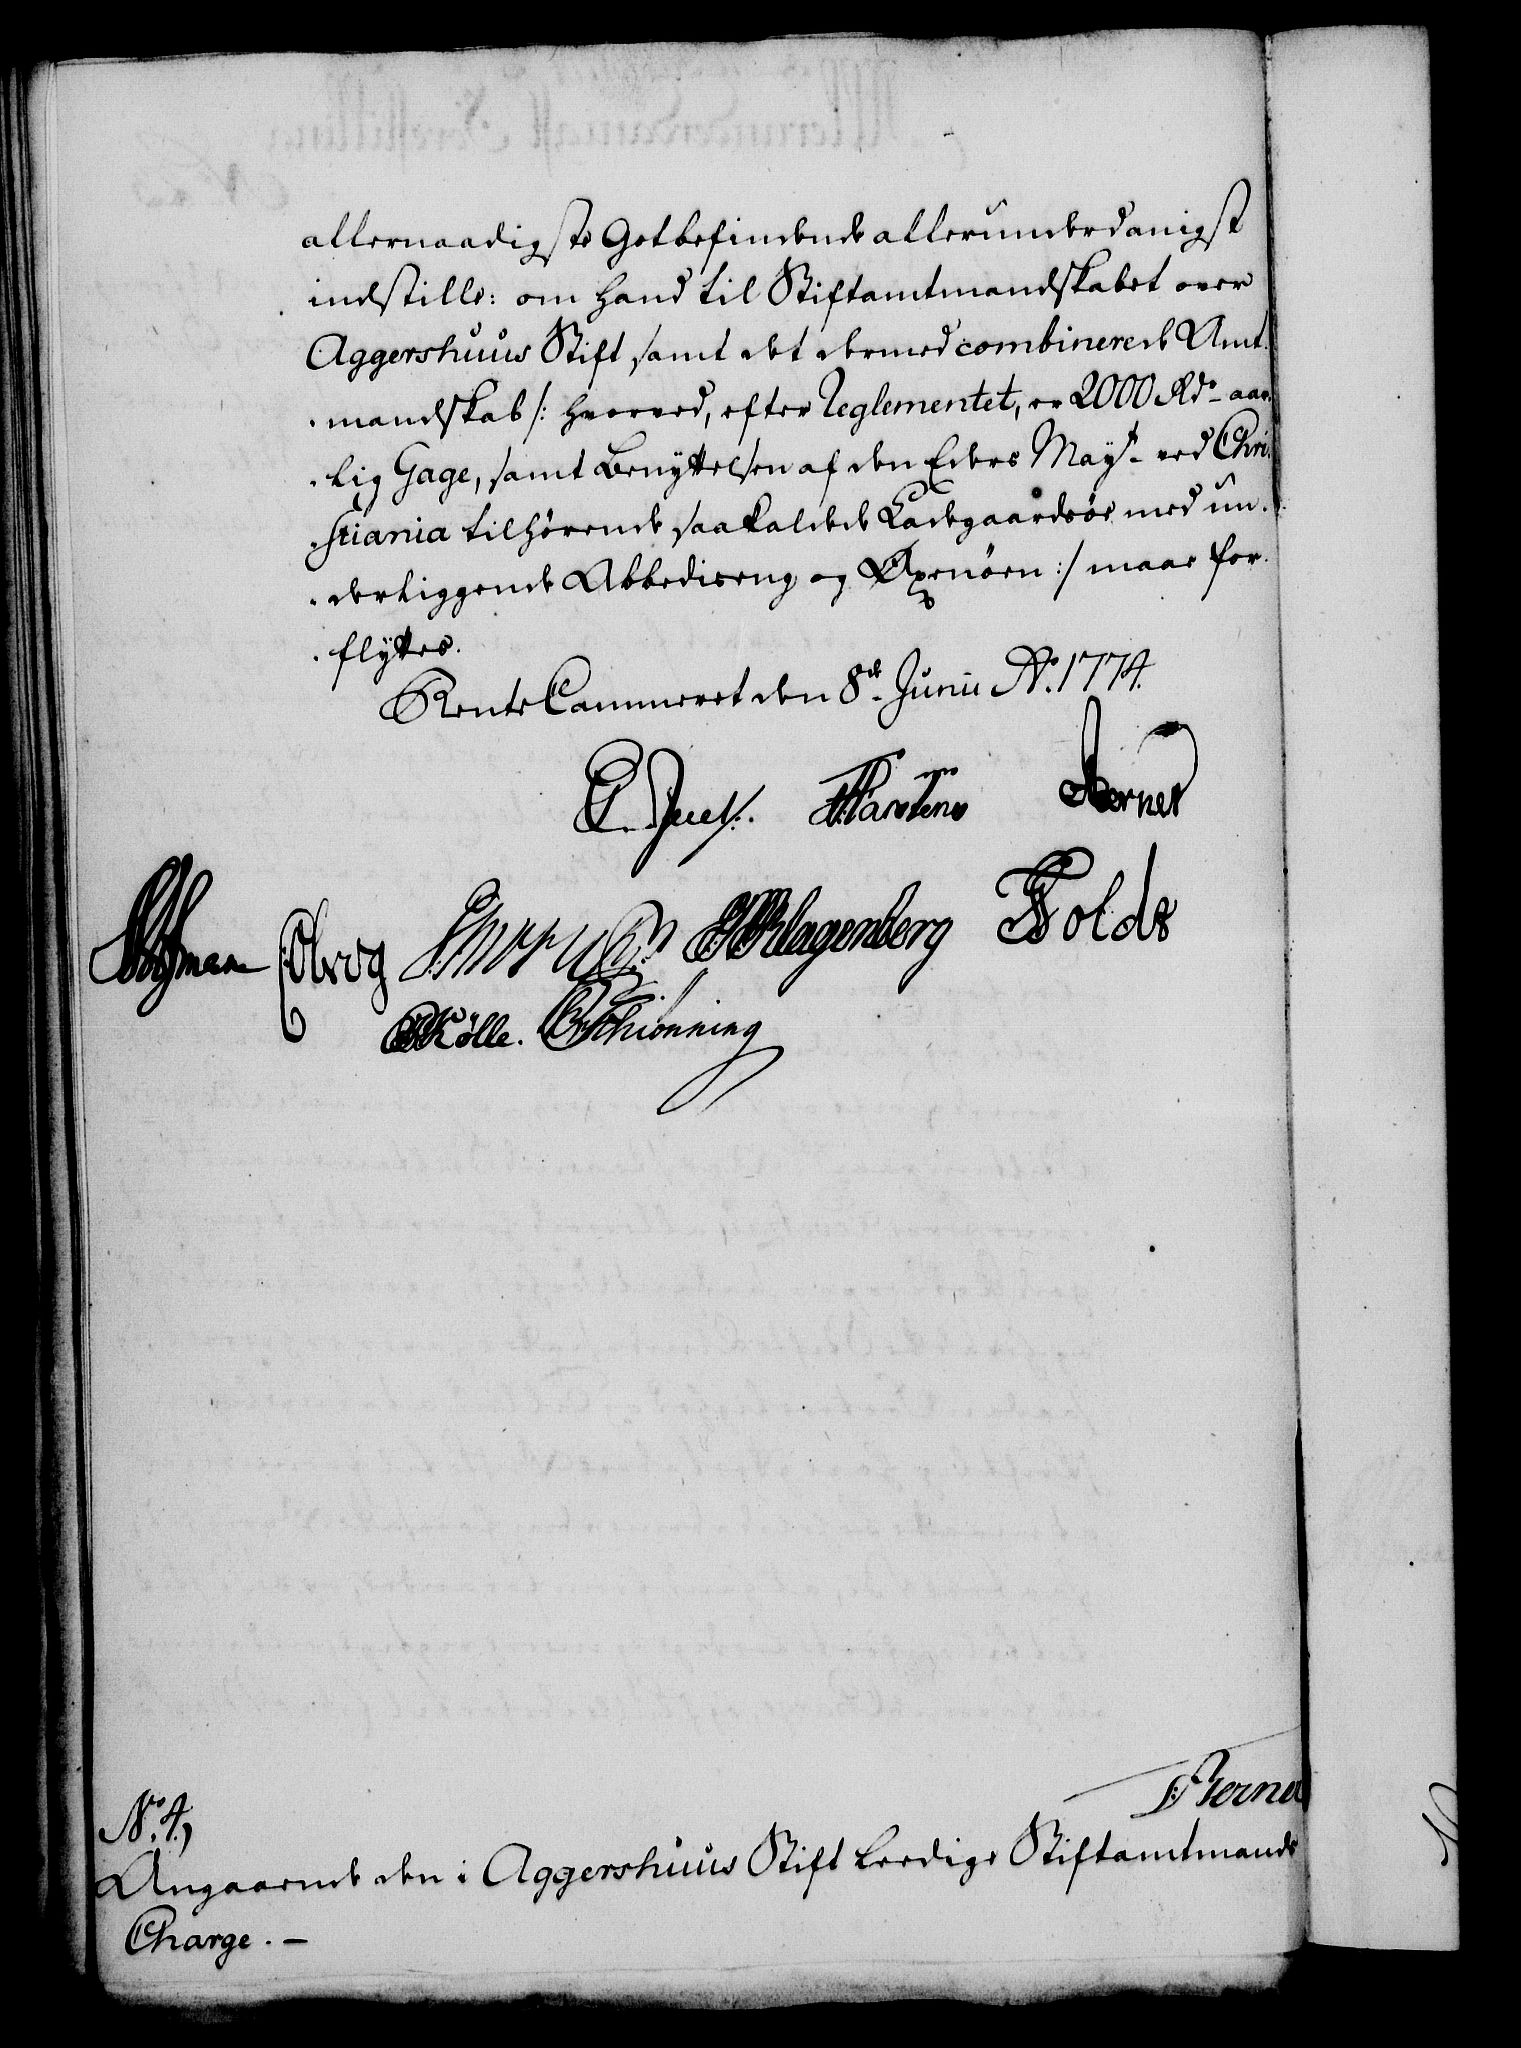 allernaadigste Gotbefindende allerunderdanigst
indstille: om hand til Stiftamtmandskabet over
Aggershuus Stift, samt det dermed combinerede Amt-
mandskab /: hvorved, efter Reglementet, er 2000 Rd. aar-
lig Gage, samt Benyttelsen af den Eders Mayt. ved Chri-
stiania tilhørende saakaldede Ladegaardsøe med un-
derliggende Abbedieeng og Øxenøen :/ maae for-
flyttes.
RenteCammeret den 8de Junii Ao. 1774.
Juel. Berner
Holde
Klagenberg
Kølle. Schionning
Berner
No. 4,
Angaaende den i Aggershuus Stift leedige Stiftamtmands
Charge. -